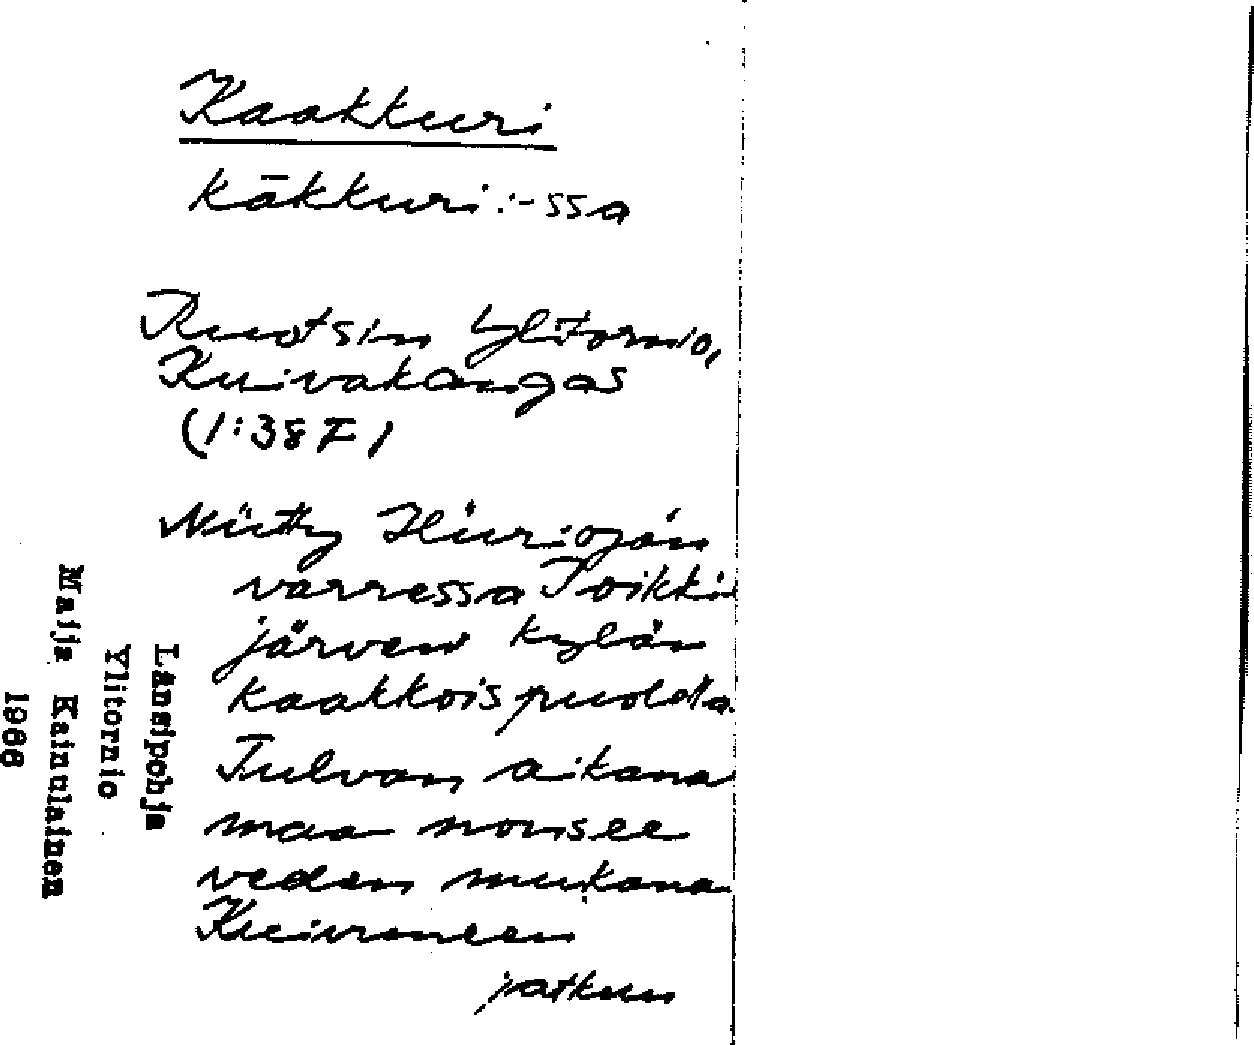 Kaakkuri
kākkuri:-ssa
Ruotsin Ylitornio,
Kuivakangas
(1:38 F)
Niitty Hüriojan
varressa Poikki-
järven kylän
kaakkoispuolella.
Tulvan aikana
maa nousee
veden mukana.
Kuivaneen
jatkuu
Länsipohja
Ylitornio
Maija Kainulainen
1966